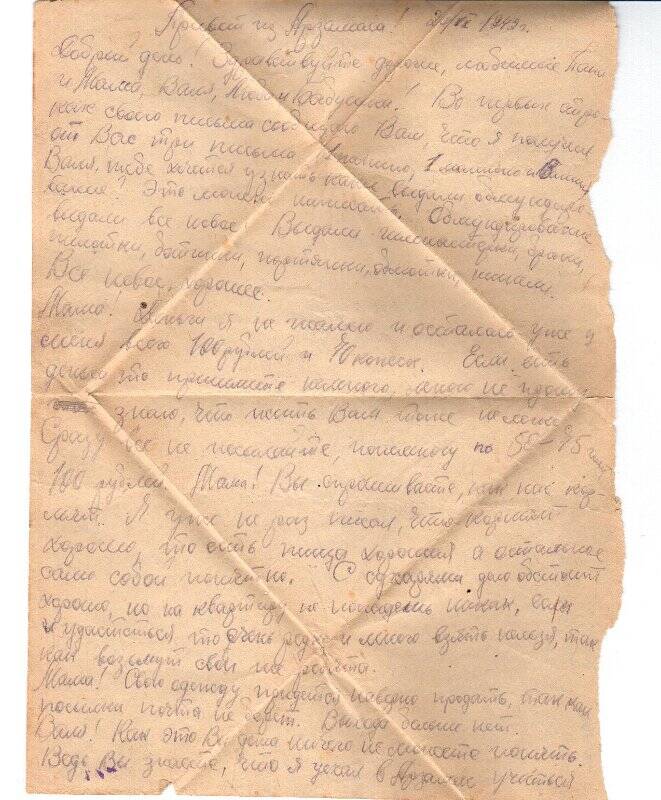 Привет из Арзамаса! 1942г.
Добрый день! Здравствуйте дорогие, любимые Папа
и Мама, Валя, и Бабушка! Во первых стро-
ках своего письма сообщаю Вам, что я получил
от Вас три письма 1
Валя, тебе хочется узнать какое выдали обмундиро-
вание? Это можно написать. Обмундирование
выдали все новое. Выдали гимнастерки, брюки,
пилотки, ботинки, портянки, обмотки,
Всё новое, хорошее.
Мама! Деньги я не жалею и осталось уже у
меня всего 100 рублей и 40 копеек. Если есть
деньги то пришлите немного, много не
знаю, что у Вас тоже не
Сразу все не посылайте, понемногу по 50-75
100 рублей. Мама! Вы спрашиваете, как нас кор-
мят. Я уже не раз писал, что кормят
хорошо, то есть пища хорошая а остальное
само собой понятно. С сухарями дело обстоит
хорошо, но на квартиру не попадешь никак, если
и удасться, то очень редко и много взять нельзя, так
как возьмут свои же ребята.
Мама! Свою одежду придется наверно продать, так как
посылки почта не берет. Выхода больше нет.
Валя! Как это Вы дома ничего не можете понять.
Ведь Вы знаете, что я уехал в Арзамас учиться